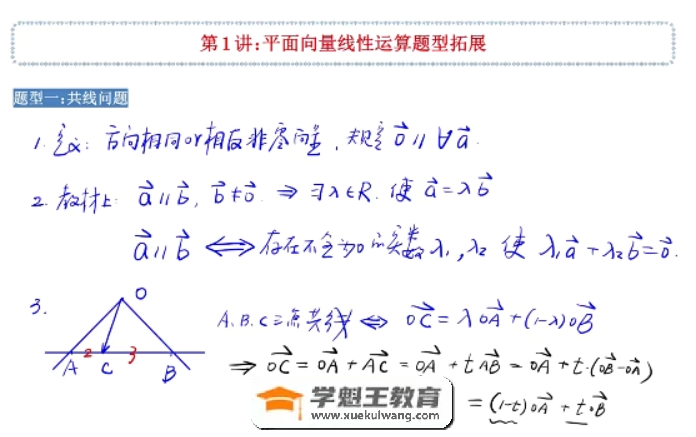 第1讲:平面向量线性运算题型拓展
题型一:共线问题
1. 定义: 方向相同or相反非零向量, 规定 0⃗ // ∀a⃗.
2. 教材上: a⃗ // b⃗, b⃗ ≠ 0⃗ ⇒ ∃λ∈R. 使 a⃗ = λb⃗
a⃗ // b⃗ ⟺ 存在不全为0的实数 λ₁, λ₂ 使 λ₁a⃗ + λ₂b⃗ = 0⃗.
3.
O
A 2 C 3 B
A. B. C三点共线 ⇔ OC⃗ = λOA⃗ + (1-λ)OB⃗
⇒ OC⃗ = OA⃗ + AC⃗ = OA⃗ + tAB⃗ = OA⃗ + t·(OB⃗ - OA⃗)
= (1-t)OA⃗ + tOB⃗
学魁王教育
www.xuekulwang.com